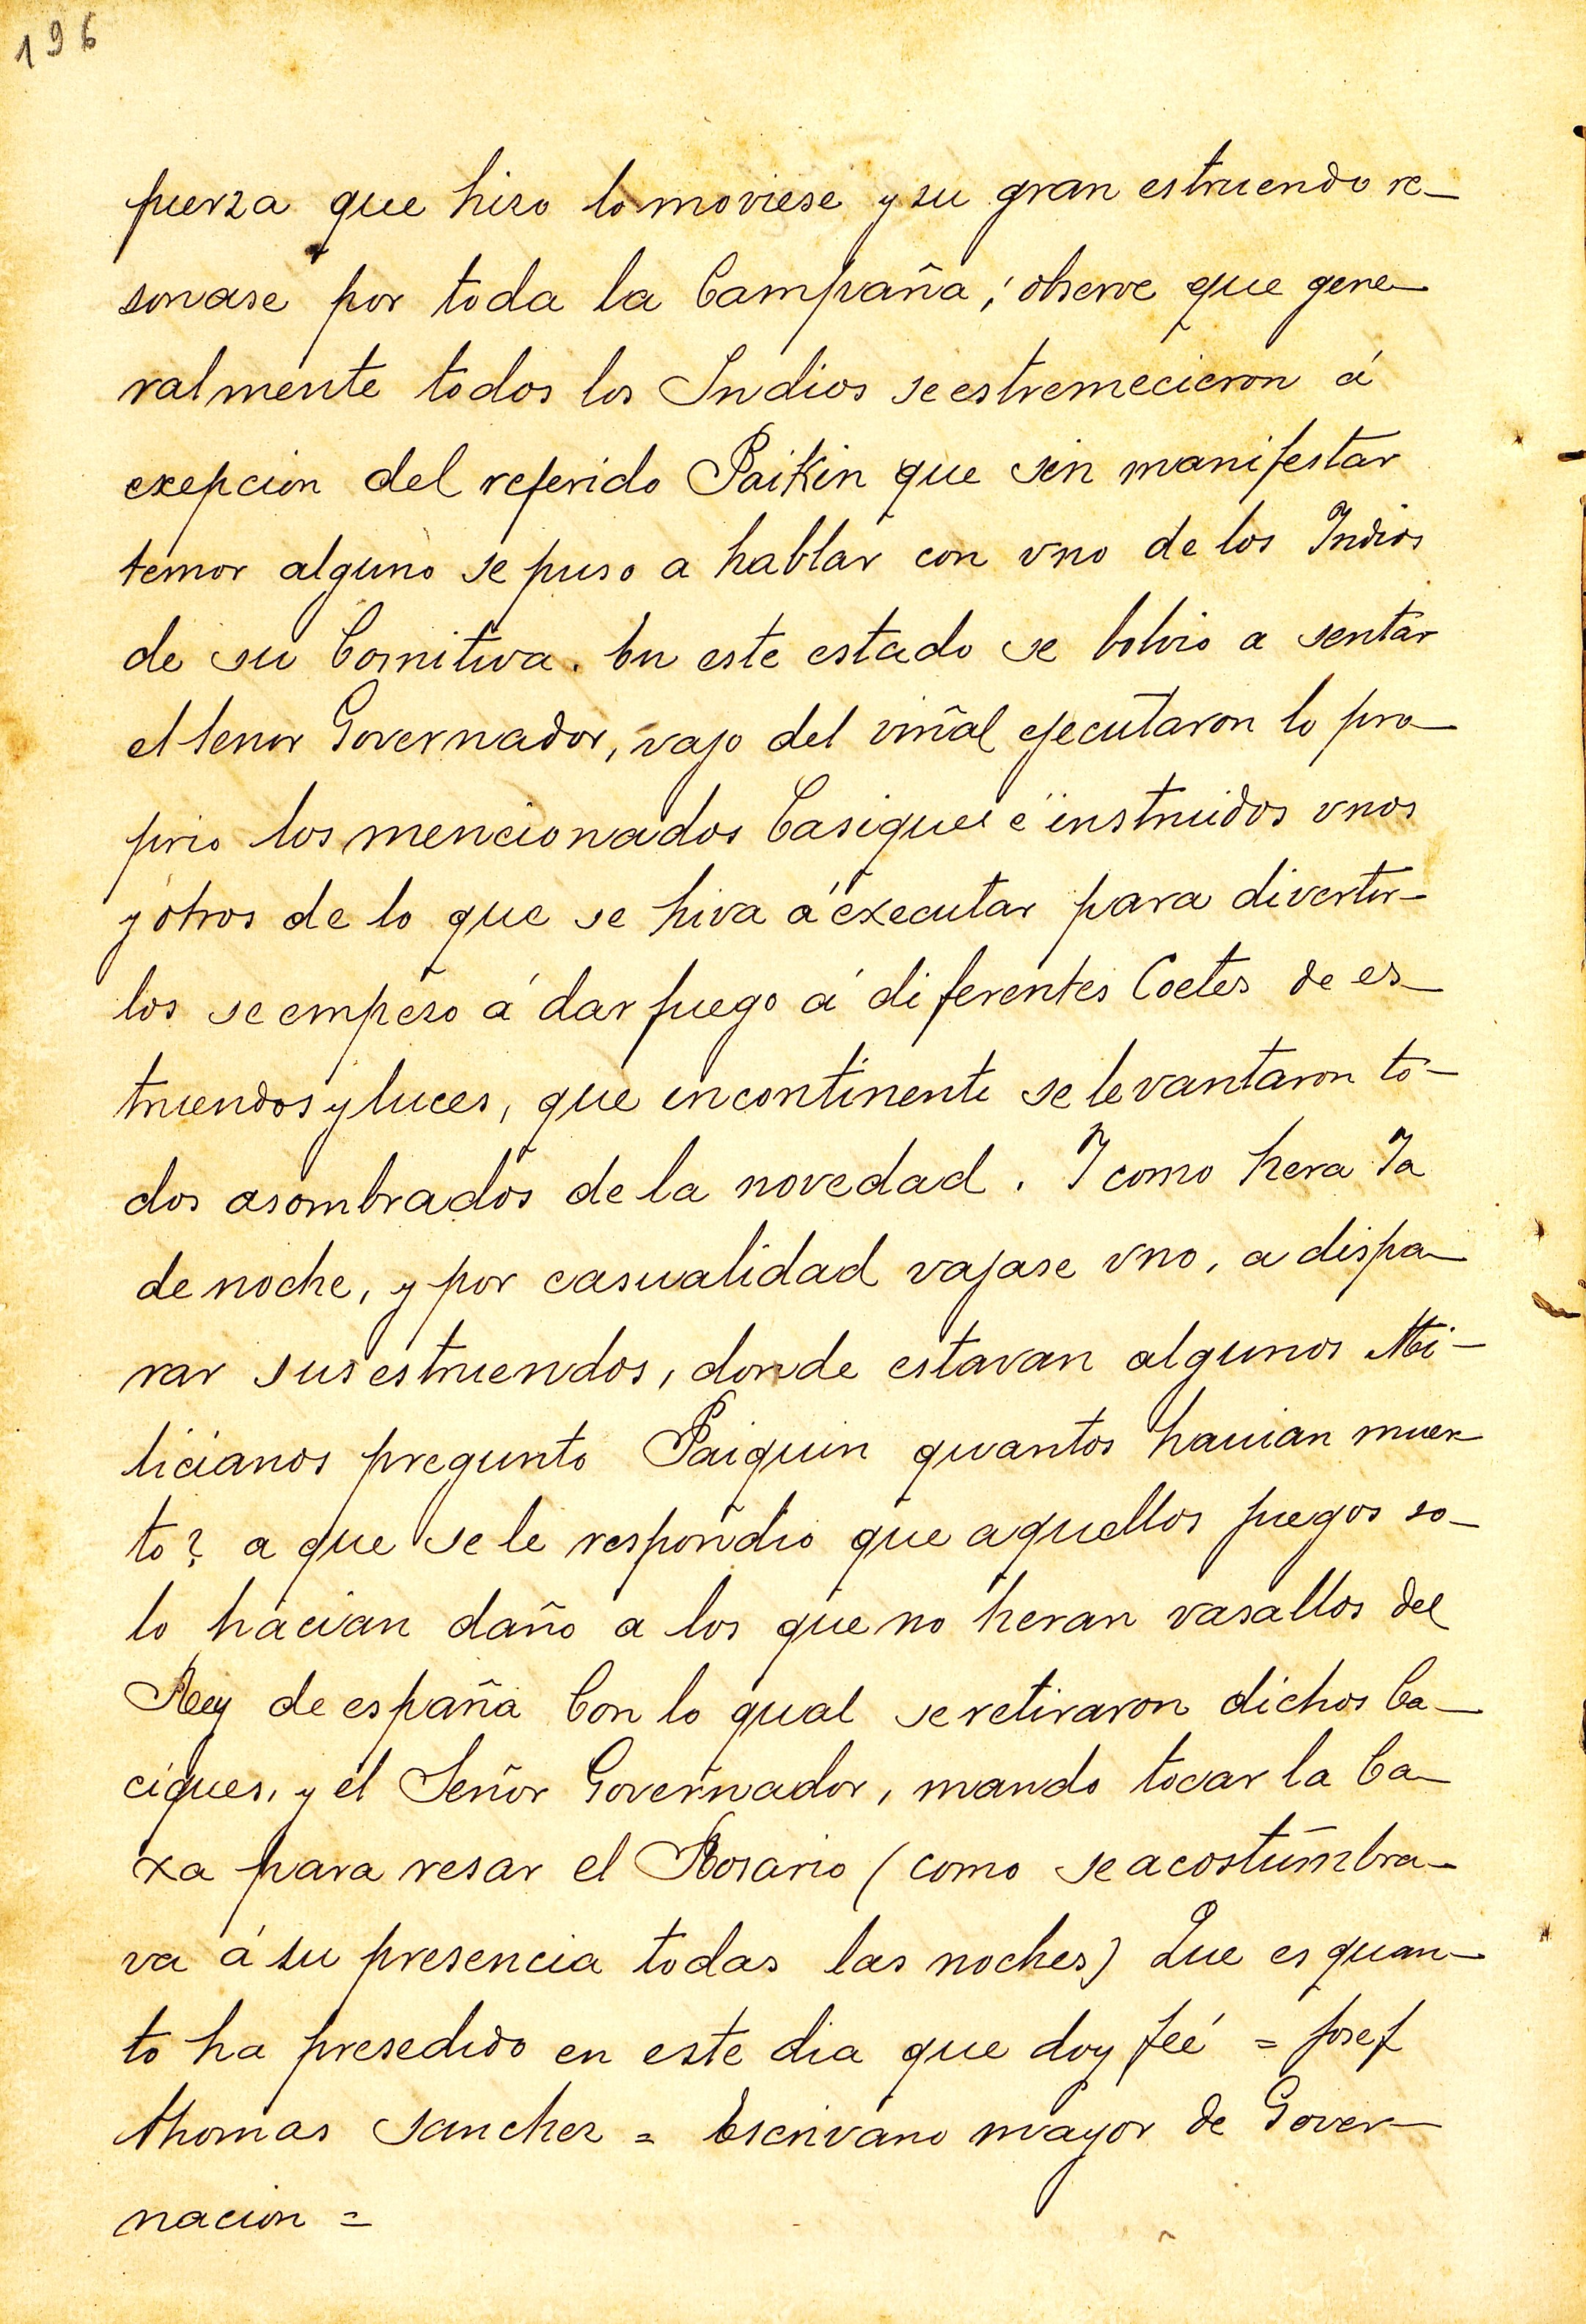 196
fuerza que hiso lo moviese y su gran estruendo re-
sonase por toda la Campaña; observe que gene-
ralmente todos los Indios se estremecieron á
exepcion del referido Paikin que sin manifestar
temor alguno se puso a hablar con vno de los Indios
de su Comitiva. En este estado se bolvio a sentar
el Senor Governador, vajo del viñal ejecutaron lo pro-
prio los mencionados Casiques é instruidos vnos
y otros de lo que se hiva á executar para divertir-
los se empeso á dar fuego á diferentes Coetes de es-
truendos y luces, que incontinenti se levantaron to-
dos asombrados de la novedad. I como hera Ia
de noche, y por casualidad vajase vno, a dispa-
rar sus estruendos, donde estavan algunos Mi-
licianos pregunto Paiquin quantos hauian muer-
to? a que se le respondio que aquellos fuegos so-
lo hacian daño a los que no heran vasallos del
Rey de españa Con lo qual se retiraron dichos Ca-
ciques, y el Señor Governador, mando tocar la Ca-
xa para resar el Rosario (como se acostumbra-
va á su presencia todas las noches) Que es quan-
to ha presedido en este dia que doy feé = Josef
thomas sanchez = Escrivano mayor de Gover-
nacion =